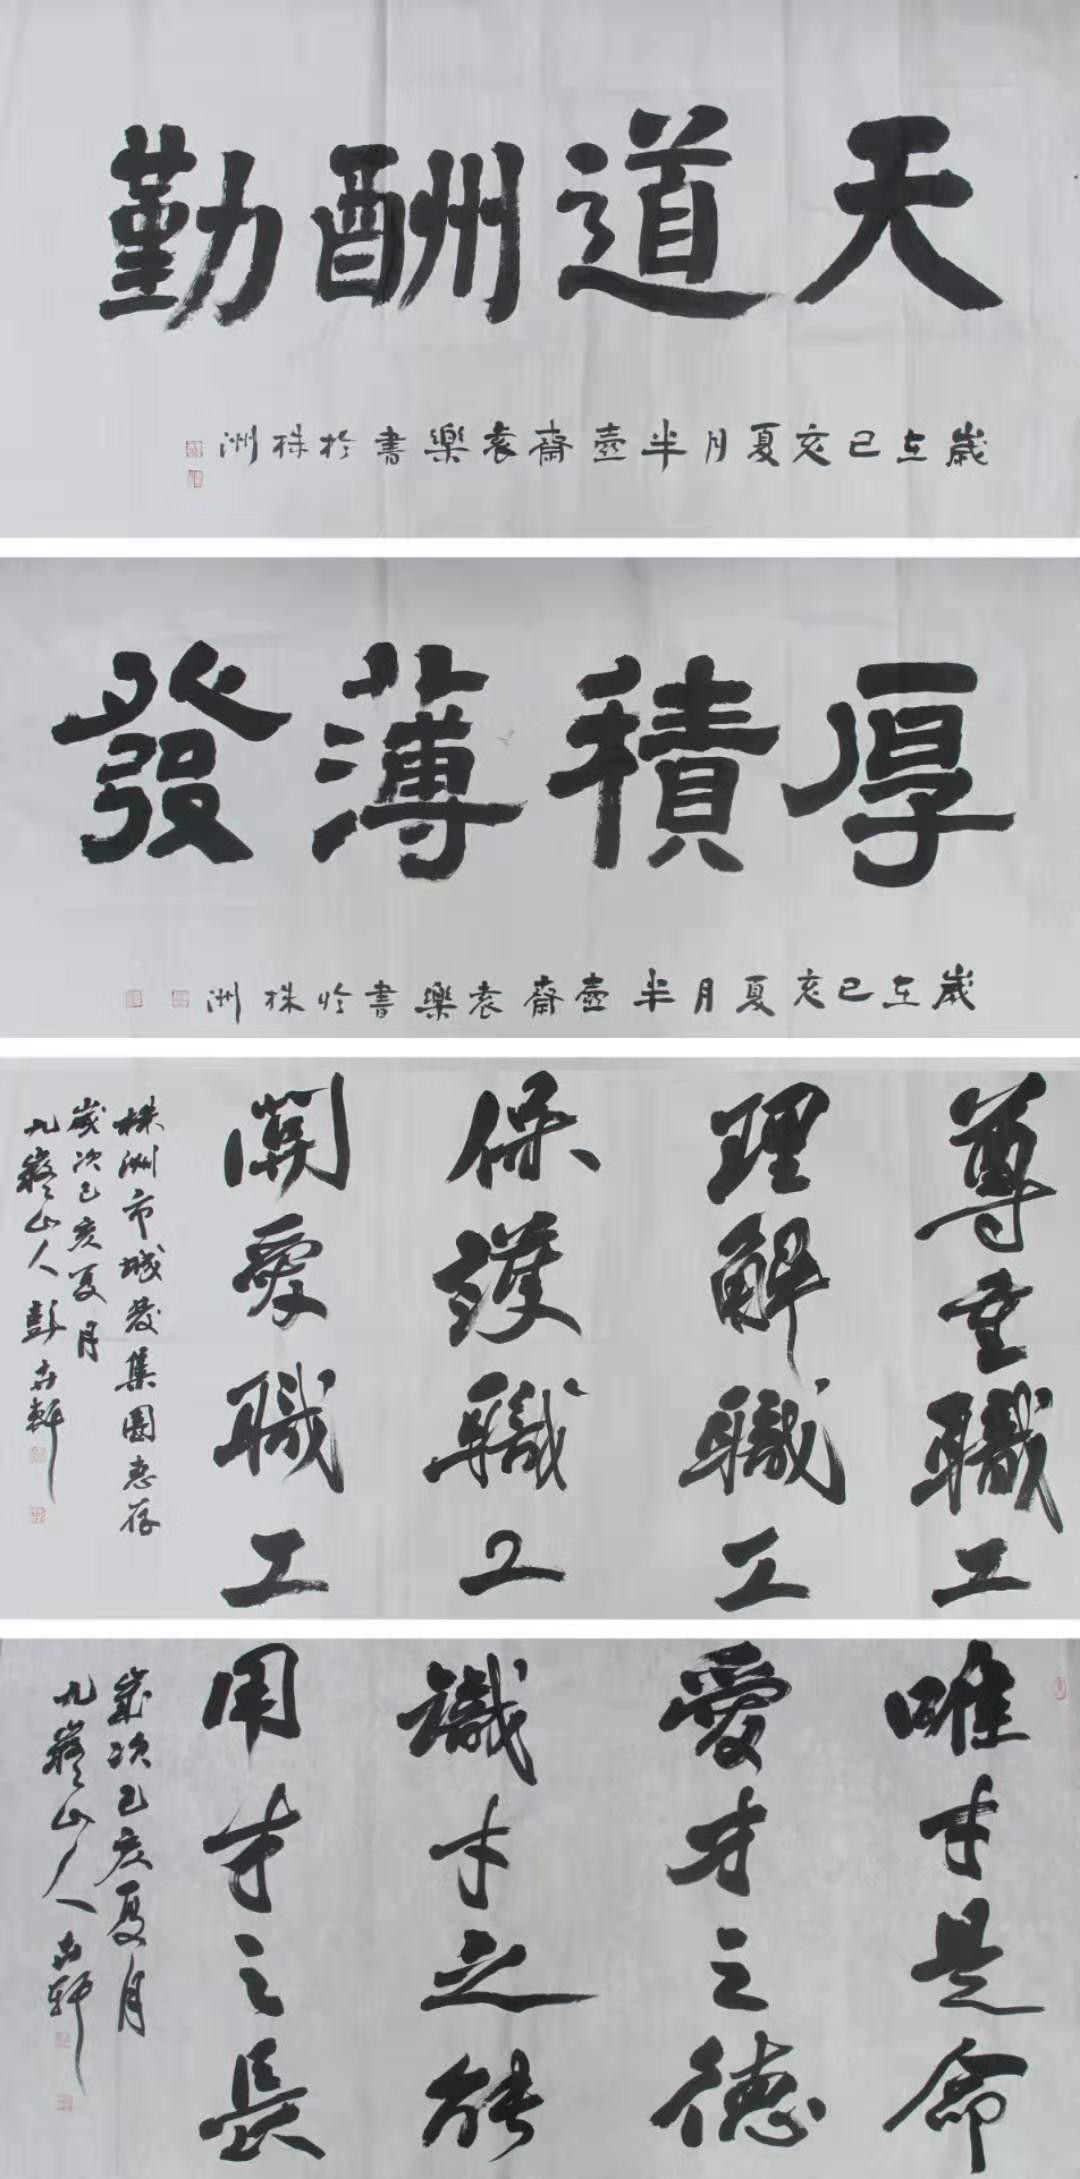 天道酬勤
歲在己亥夏月半壺齋袁樂書於株洲
厚積薄發
歲在己亥夏月半壺齋袁樂書於株洲
尊重職工
理解職工
保護職工
關愛職工
株洲市城發集團惠存
歲次己亥夏月
九嶷山人彭軒
唯才是命
愛才之德
識才之能
用才之長
歲次己亥夏月
九嶷山人軒